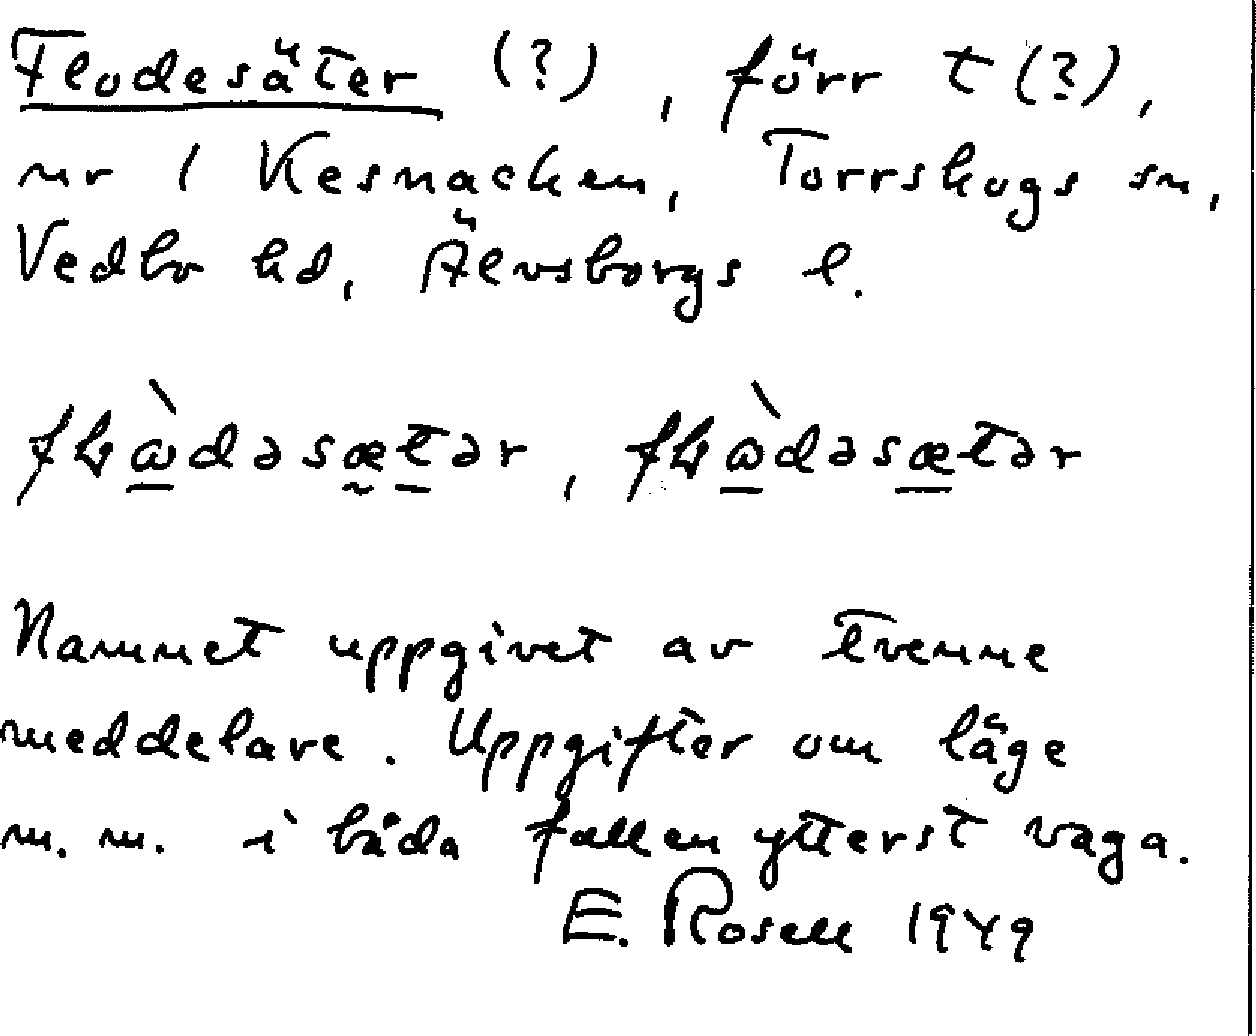 Flodesäter (?), förr t (?),
nr 1 Kesnacken, Torrskogs sn,
Vedbo hd, Älvsborgs l.
Namnet uppgivet av tvenne
meddelare. Uppgifter om läge
m. m. i båda fallen ytterst vaga.
E. Rosell 1949